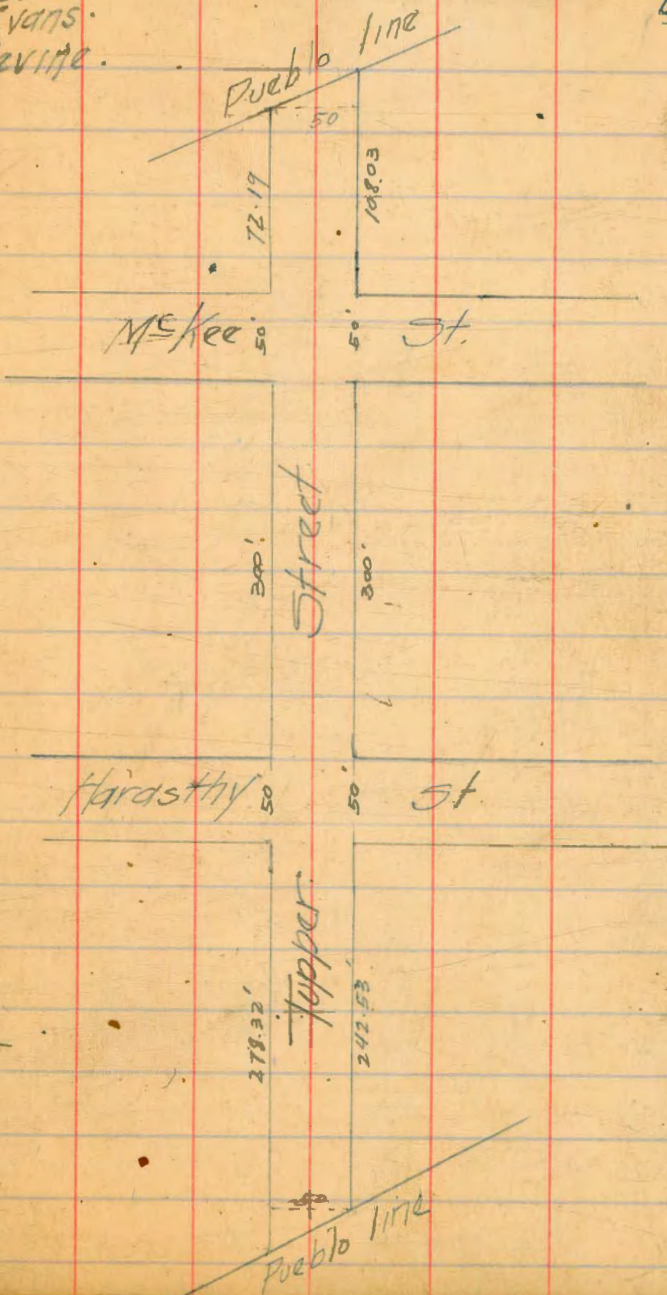 vans.
Pueblo line
50
72.19
108.03
McKee 50' 50' St.
300' Street 300'
Harasthy 50 50' St.
278.32' Tupper 242.53'
50
Pueblo line